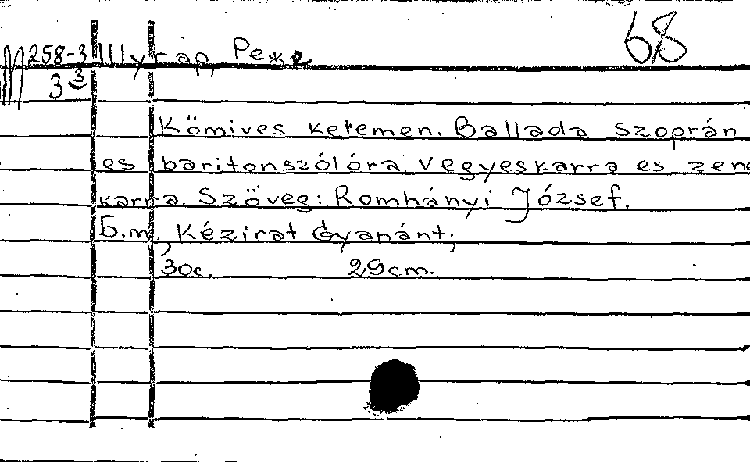 68
M 258-3 Шугар, Реже
3 3
Kömives kelemen. Ballada szoprán
es baritonszólóra vegyeskarra es zene
karra Szöveg: Romhányi József.
Б.м., Kézirat Gyanánt,
30c. 29cm.